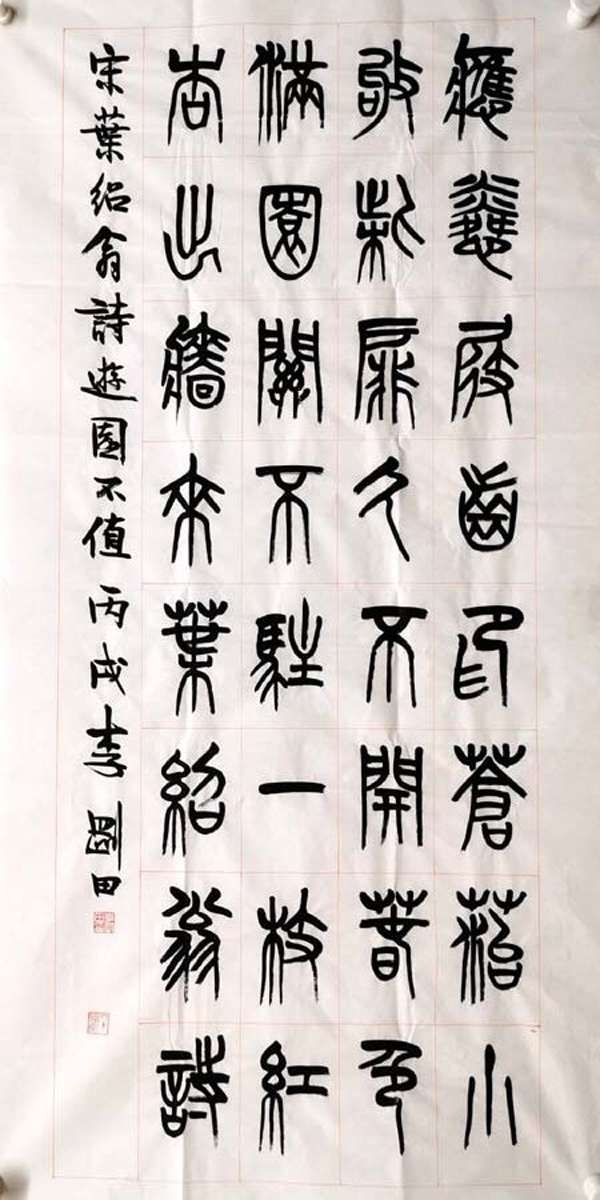 應憐屐齒印蒼菭小
敂柴扉久不開春色
滿園關不駐一枝紅
杏出牆來葉紹翁詩
宋葉紹翁詩遊園不值 丙戌李剛田